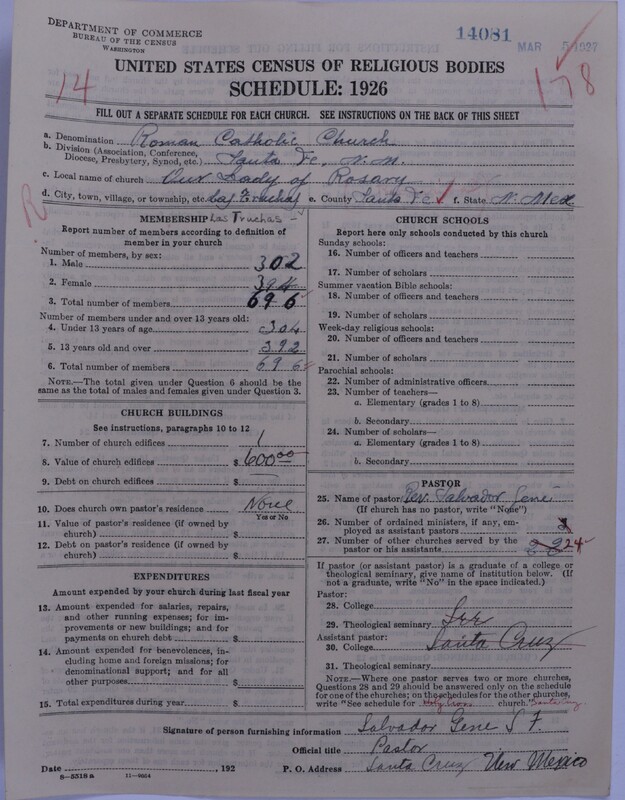 DEPARTMENT OF COMMERCE
BUREAU OF THE CENSUS
WASHINGTON
14081
MAR 5 1927
UNITED STATES CENSUS OF RELIGIOUS BODIES
SCHEDULE: 1926
14
178
FILL OUT A SEPARATE SCHEDULE FOR EACH CHURCH. SEE INSTRUCTIONS ON THE BACK OF THIS SHEET
a. Denomination Roman Catholic Church
b. Division (Association, Conference, Diocese, Presbytery, Synod, etc.) Santa Fe, N. M.
c. Local name of church Our Lady of Rosary
d. City, town, village, or township, etc. Las Truchas e. County Santa Fe f. State N. Mex
R
MEMBERSHIP Las Truchas
Report number of members according to definition of
member in your church
Number of members, by sex:
1. Male 302
2. Female 394
3. Total number of members 696
Number of members under and over 13 years old:
4. Under 13 years of age 304
5. 13 years old and over 392
6. Total number of members 696
NOTE.—The total given under Question 6 should be
same as the total of males and females given under Question 3.
CHURCH BUILDINGS
See instructions, paragraphs 10 to 12
7. Number of church edifices 1
8. Value of church edifices $ 600.00
9. Debt on church edifices $
10. Does church own pastor's residence None
Yes or No
11. Value of pastor's residence (if owned by
church) $
12. Debt on pastor's residence (if owned by
church) $
EXPENDITURES
Amount expended by your church during last fiscal year
13. Amount expended for salaries, repairs,
and other running expenses; for im-
provements or new buildings; and for
payments on church debt $
14. Amount expended for benevolences, in-
cluding home and foreign missions; for
denominational support; and for all
other purposes $
15. Total expenditures during year $
CHURCH SCHOOLS
Report here only schools conducted by this church
Sunday schools:
16. Number of officers and teachers
17. Number of scholars
Summer vacation Bible schools:
18. Number of officers and teachers
19. Number of scholars
Week-day religious schools:
20. Number of officers and teachers
21. Number of scholars
Parochial schools:
22. Number of administrative officers
23. Number of teachers—
a. Elementary (grades 1 to 8)
b. Secondary
24. Number of scholars—
a. Elementary (grades 1 to 8)
b. Secondary
PASTOR
25. Name of pastor Rev. Salvador Gene
(If church has no pastor, write "None")
26. Number of ordained ministers, if any, em-
ployed as assistant pastors
27. Number of other churches served by the
pastor or his assistants 24
If pastor (or assistant pastor) is a graduate of a college or
theological seminary, give name of institution below. (If
not a graduate, write "No" in the space indicated.)
Pastor:
28. College
29. Theological seminary See
Assistant pastor:
30. College Santa Cruz
31. Theological seminary
NOTE.—Where one pastor serves two or more churches,
Questions 28 and 29 should be answered only on the schedule
for one of the churches; on the schedules for the other churches,
write "See schedule for Holy Cross church." Santa Cruz
Signature of person furnishing information Salvador Gene S F.
Official title Pastor
Date 192 P. O. Address Santa Cruz New Mexico
8-5518a 11-9664